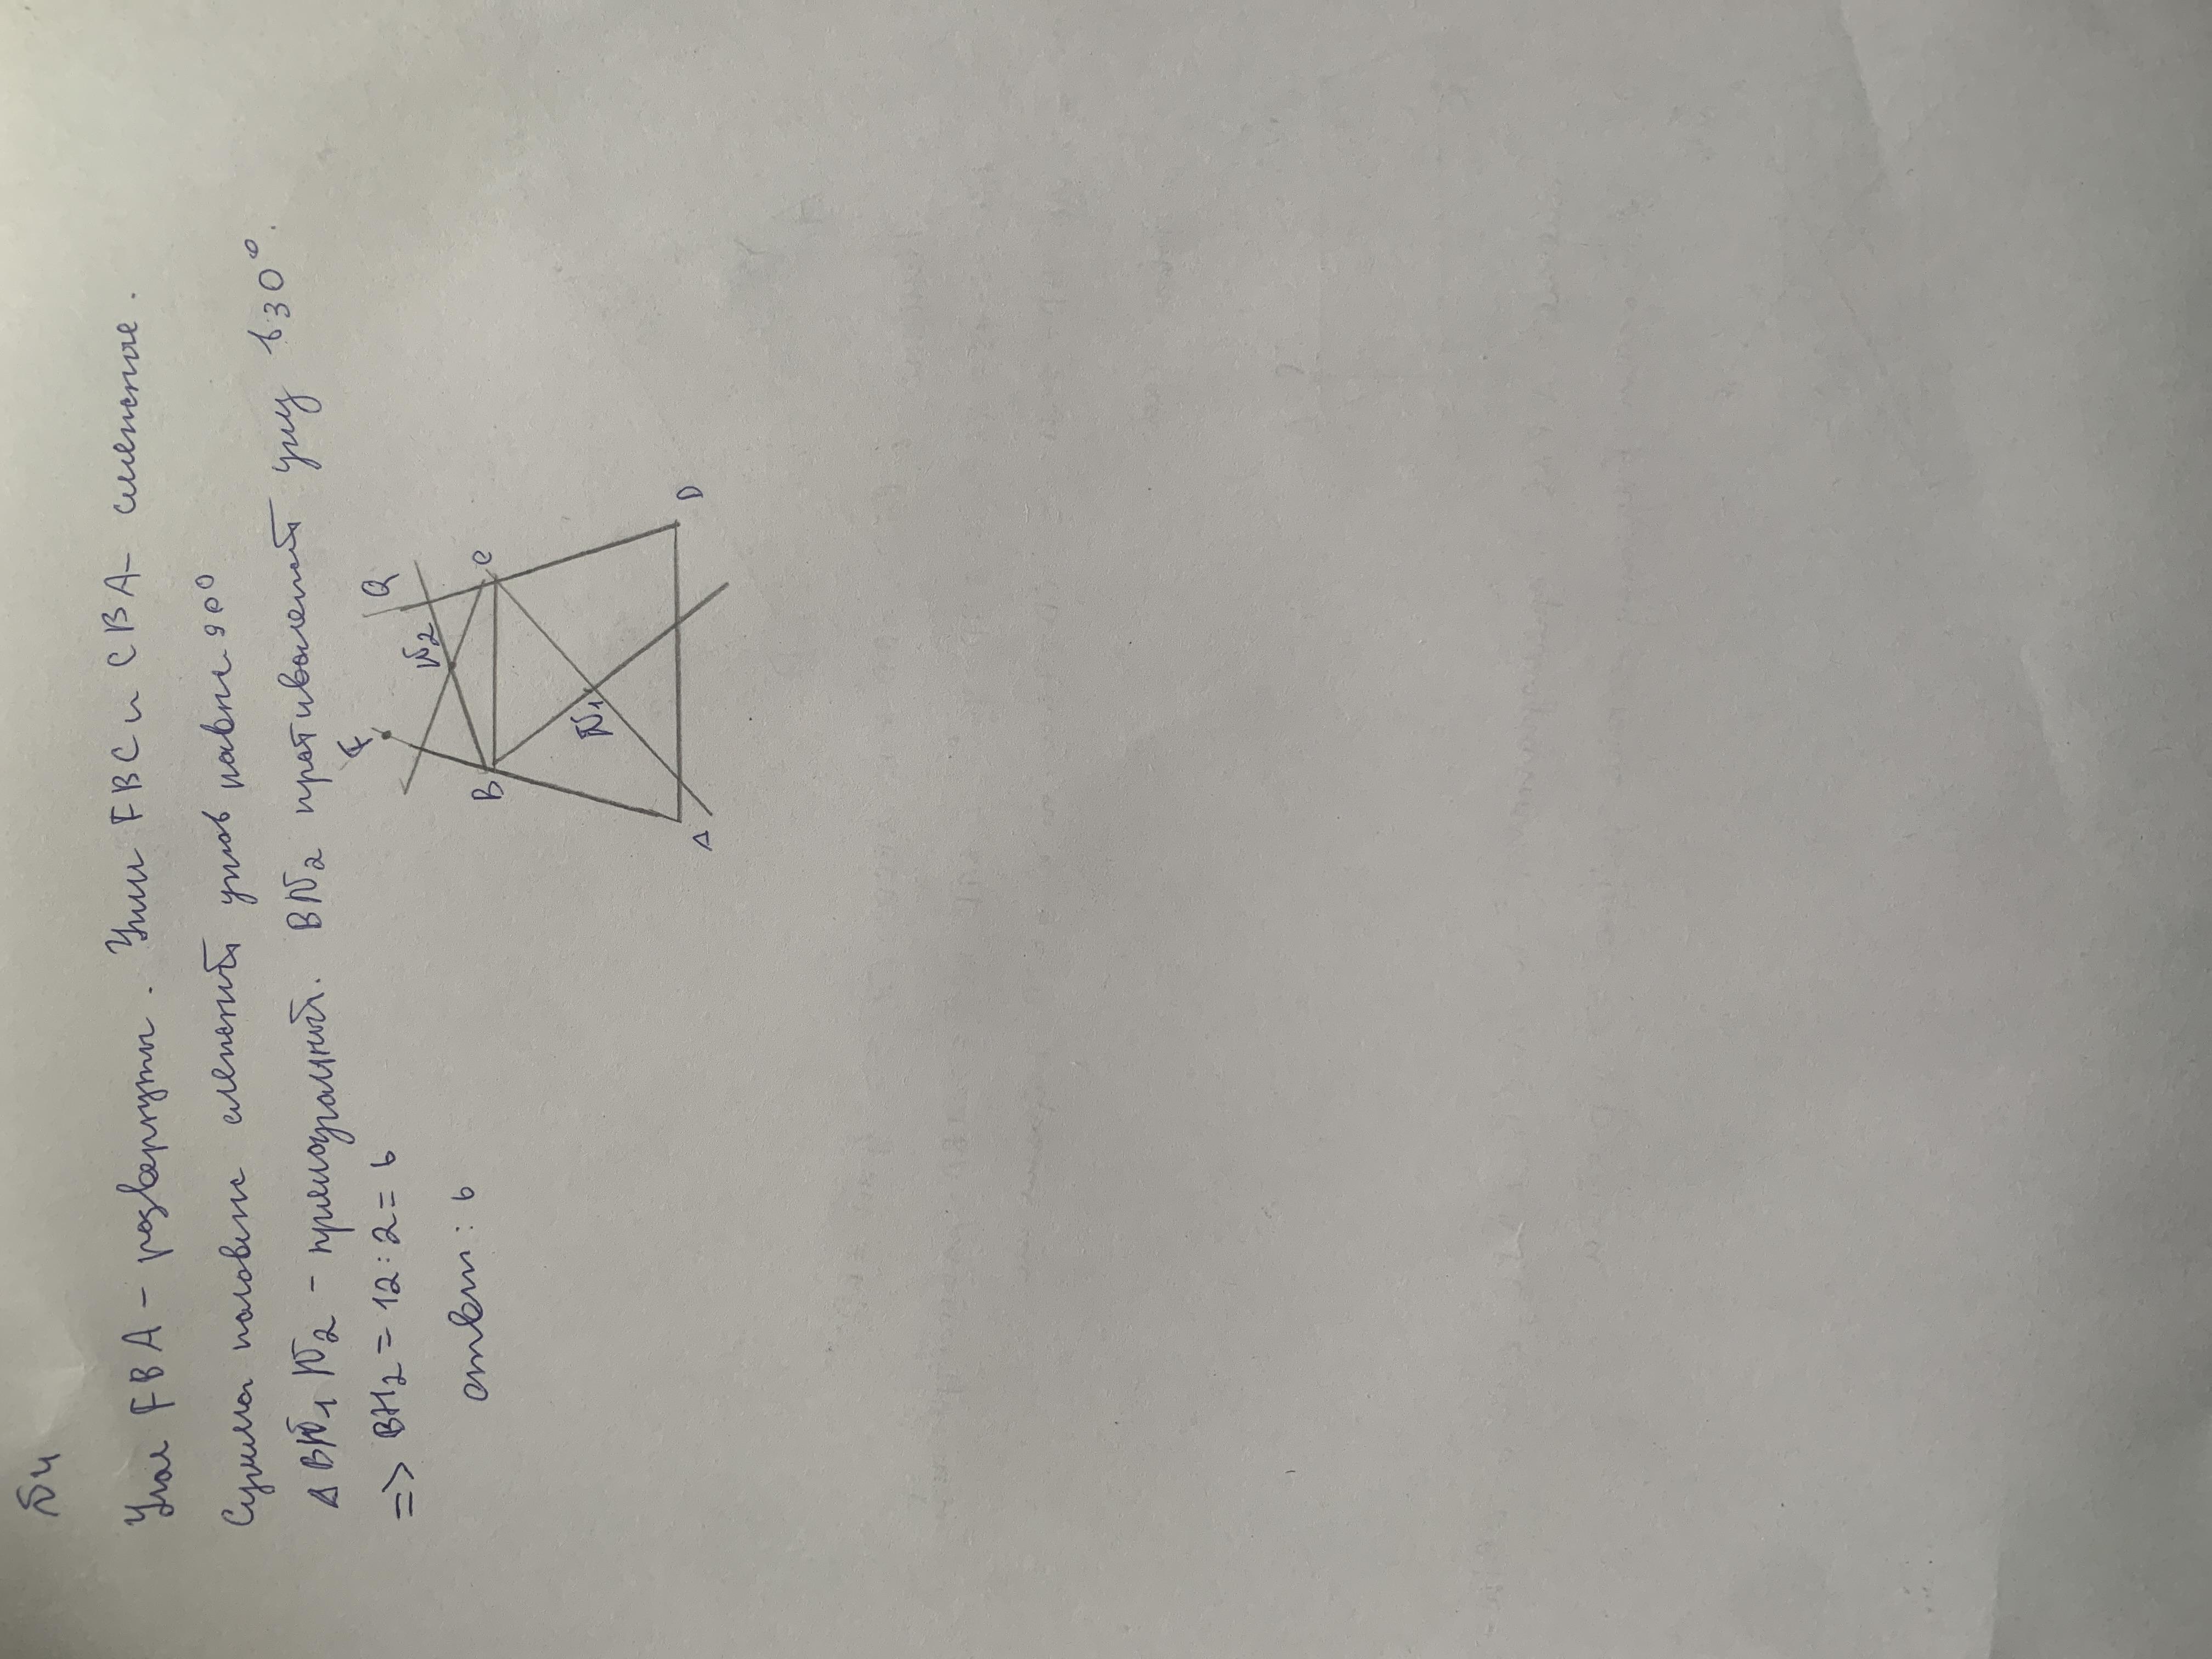 №4
Угол FBA – развернутый. Углы FBC и CBA – смежные.
Сумма половин смежных углов равны 90°
Δ BN₁N₂ – прямоугольный. BN₂ противолежит углу в 30°.
=> BH₂ = 12:2 = 6
ответ: 6
F
Q
N₂
B
C
N₁
A
D